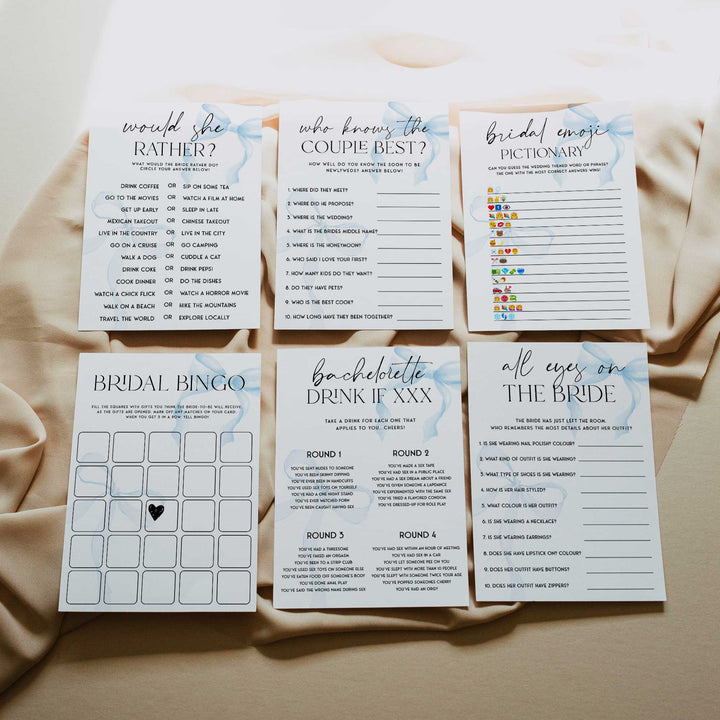 would she
RATHER?
WHAT WOULD THE BRIDE RATHER DO?
CIRCLE YOUR ANSWER BELOW!
DRINK COFFEE OR SIP ON SOME TEA
GO TO THE MOVIES OR WATCH A FILM AT HOME
GET UP EARLY OR SLEEP IN LATE
MEXICAN TAKEOUT OR CHINESE TAKEOUT
LIVE IN THE COUNTRY OR LIVE IN THE CITY
GO ON A CRUISE OR GO CAMPING
WALK A DOG OR CUDDLE A CAT
DRINK COKE OR DRINK PEPSI
COOK DINNER OR DO THE DISHES
WATCH A CHICK FLICK OR WATCH A HORROR MOVIE
WALK ON A BEACH OR HIKE THE MOUNTAINS
TRAVEL THE WORLD OR EXPLORE LOCALLY
who knows the
COUPLE BEST?
HOW WELL DO YOU KNOW THE SOON TO BE
NEWLYWEDS? ANSWER BELOW!
1. WHERE DID THEY MEET?
2. WHERE DID HE PROPOSE?
3. WHERE IS THE WEDDING?
4. WHAT IS THE BRIDES MIDDLE NAME?
5. WHERE IS THE HONEYMOON?
6. WHO SAID I LOVE YOUR FIRST?
7. HOW MANY KIDS DO THEY WANT?
8. DO THEY HAVE PETS?
9. WHO IS THE BEST COOK?
10. HOW LONG HAVE THEY BEEN TOGETHER?
bridal emoji
PICTIONARY
CAN YOU GUESS THE WEDDING THEMED WORD OR PHRASE?
THE ONE WITH THE MOST CORRECT ANSWERS WINS!
BRIDAL BINGO
FILL THE SQUARES WITH GIFTS YOU THINK THE BRIDE-TO-BE WILL RECEIVE.
AS THE GIFTS ARE OPENED, MARK OFF ANY MATCHES ON YOUR CARD.
WHEN YOU GET 5 IN A ROW, YELL BINGO!
bachelorette
DRINK IF XXX
TAKE A DRINK FOR EACH ONE THAT
APPLIES TO YOU... CHEERS!
ROUND 1
YOU'VE SENT NUDES TO SOMEONE
YOU'VE BEEN SKINNY DIPPING
YOU'VE EVER BEEN IN HANDCUFFS
YOU'VE USED SEX TOYS ON YOURSELF
YOU'VE HAD A ONE NIGHT STAND
YOU'VE EVER WATCHED PORN
YOU'VE BEEN CAUGHT HAVING SEX
ROUND 2
YOU'VE MADE A SEX TAPE
YOU'VE HAD SEX IN A PUBLIC PLACE
YOU'VE HAD A SEX DREAM ABOUT A FRIEND
YOU'VE GIVEN SOMEONE A LAPDANCE
YOU'VE EXPERIMENTED WITH THE SAME SEX
YOU'VE TRIED A FLAVORED CONDOM
YOU'VE DRESSED-UP FOR ROLE PLAY
ROUND 3
YOU'VE HAD A THREESOME
YOU'VE FAKED AN ORGASM
YOU'VE BEEN TO A STRIP CLUB
YOU'VE USED SEX TOYS ON SOMEONE ELSE
YOU'VE EATEN FOOD OFF SOMEONE'S BODY
YOU'VE DONE ANAL PLAY
YOU'VE SAID THE WRONG NAME DURING SEX
ROUND 4
YOU'VE HAD SEX WITHIN AN HOUR OF MEETING
YOU'VE HAD SEX IN A CAR
YOU'VE LET SOMEONE PEE ON YOU
YOU'VE SLEPT WITH MORE THAN 10 PEOPLE
YOU'VE SLEPT WITH SOMEONE TWICE YOUR AGE
YOU'VE POPPED SOMEONES CHERRY
YOU'VE HAD AN ORGY
all eyes on
THE BRIDE
THE BRIDE HAS JUST LEFT THE ROOM.
WHO REMEMBERS THE MOST DETAILS ABOUT HER OUTFIT?
1. IS SHE WEARING NAIL POLISH COLOUR?
2. WHAT KIND OF OUTFIT IS SHE WEARING?
3. WHAT TYPE OF SHOES IS SHE WEARING?
4. HOW IS HER HAIR STYLED?
5. WHAT COLOUR IS HER OUTFIT?
6. IS SHE WEARING A NECKLACE?
7. IS SHE WEARING EARRINGS?
8. DOES SHE HAVE LIPSTICK ON? COLOUR?
9. DOES HER OUTFIT HAVE BUTTONS?
10. DOES HER OUTFIT HAVE ZIPPERS?